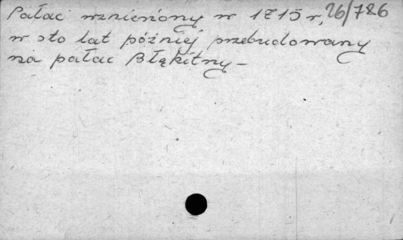 Pałac wzniesiony w 1715 r, 26/726
w sto lat później przebudowany
na pałac Błękitny –